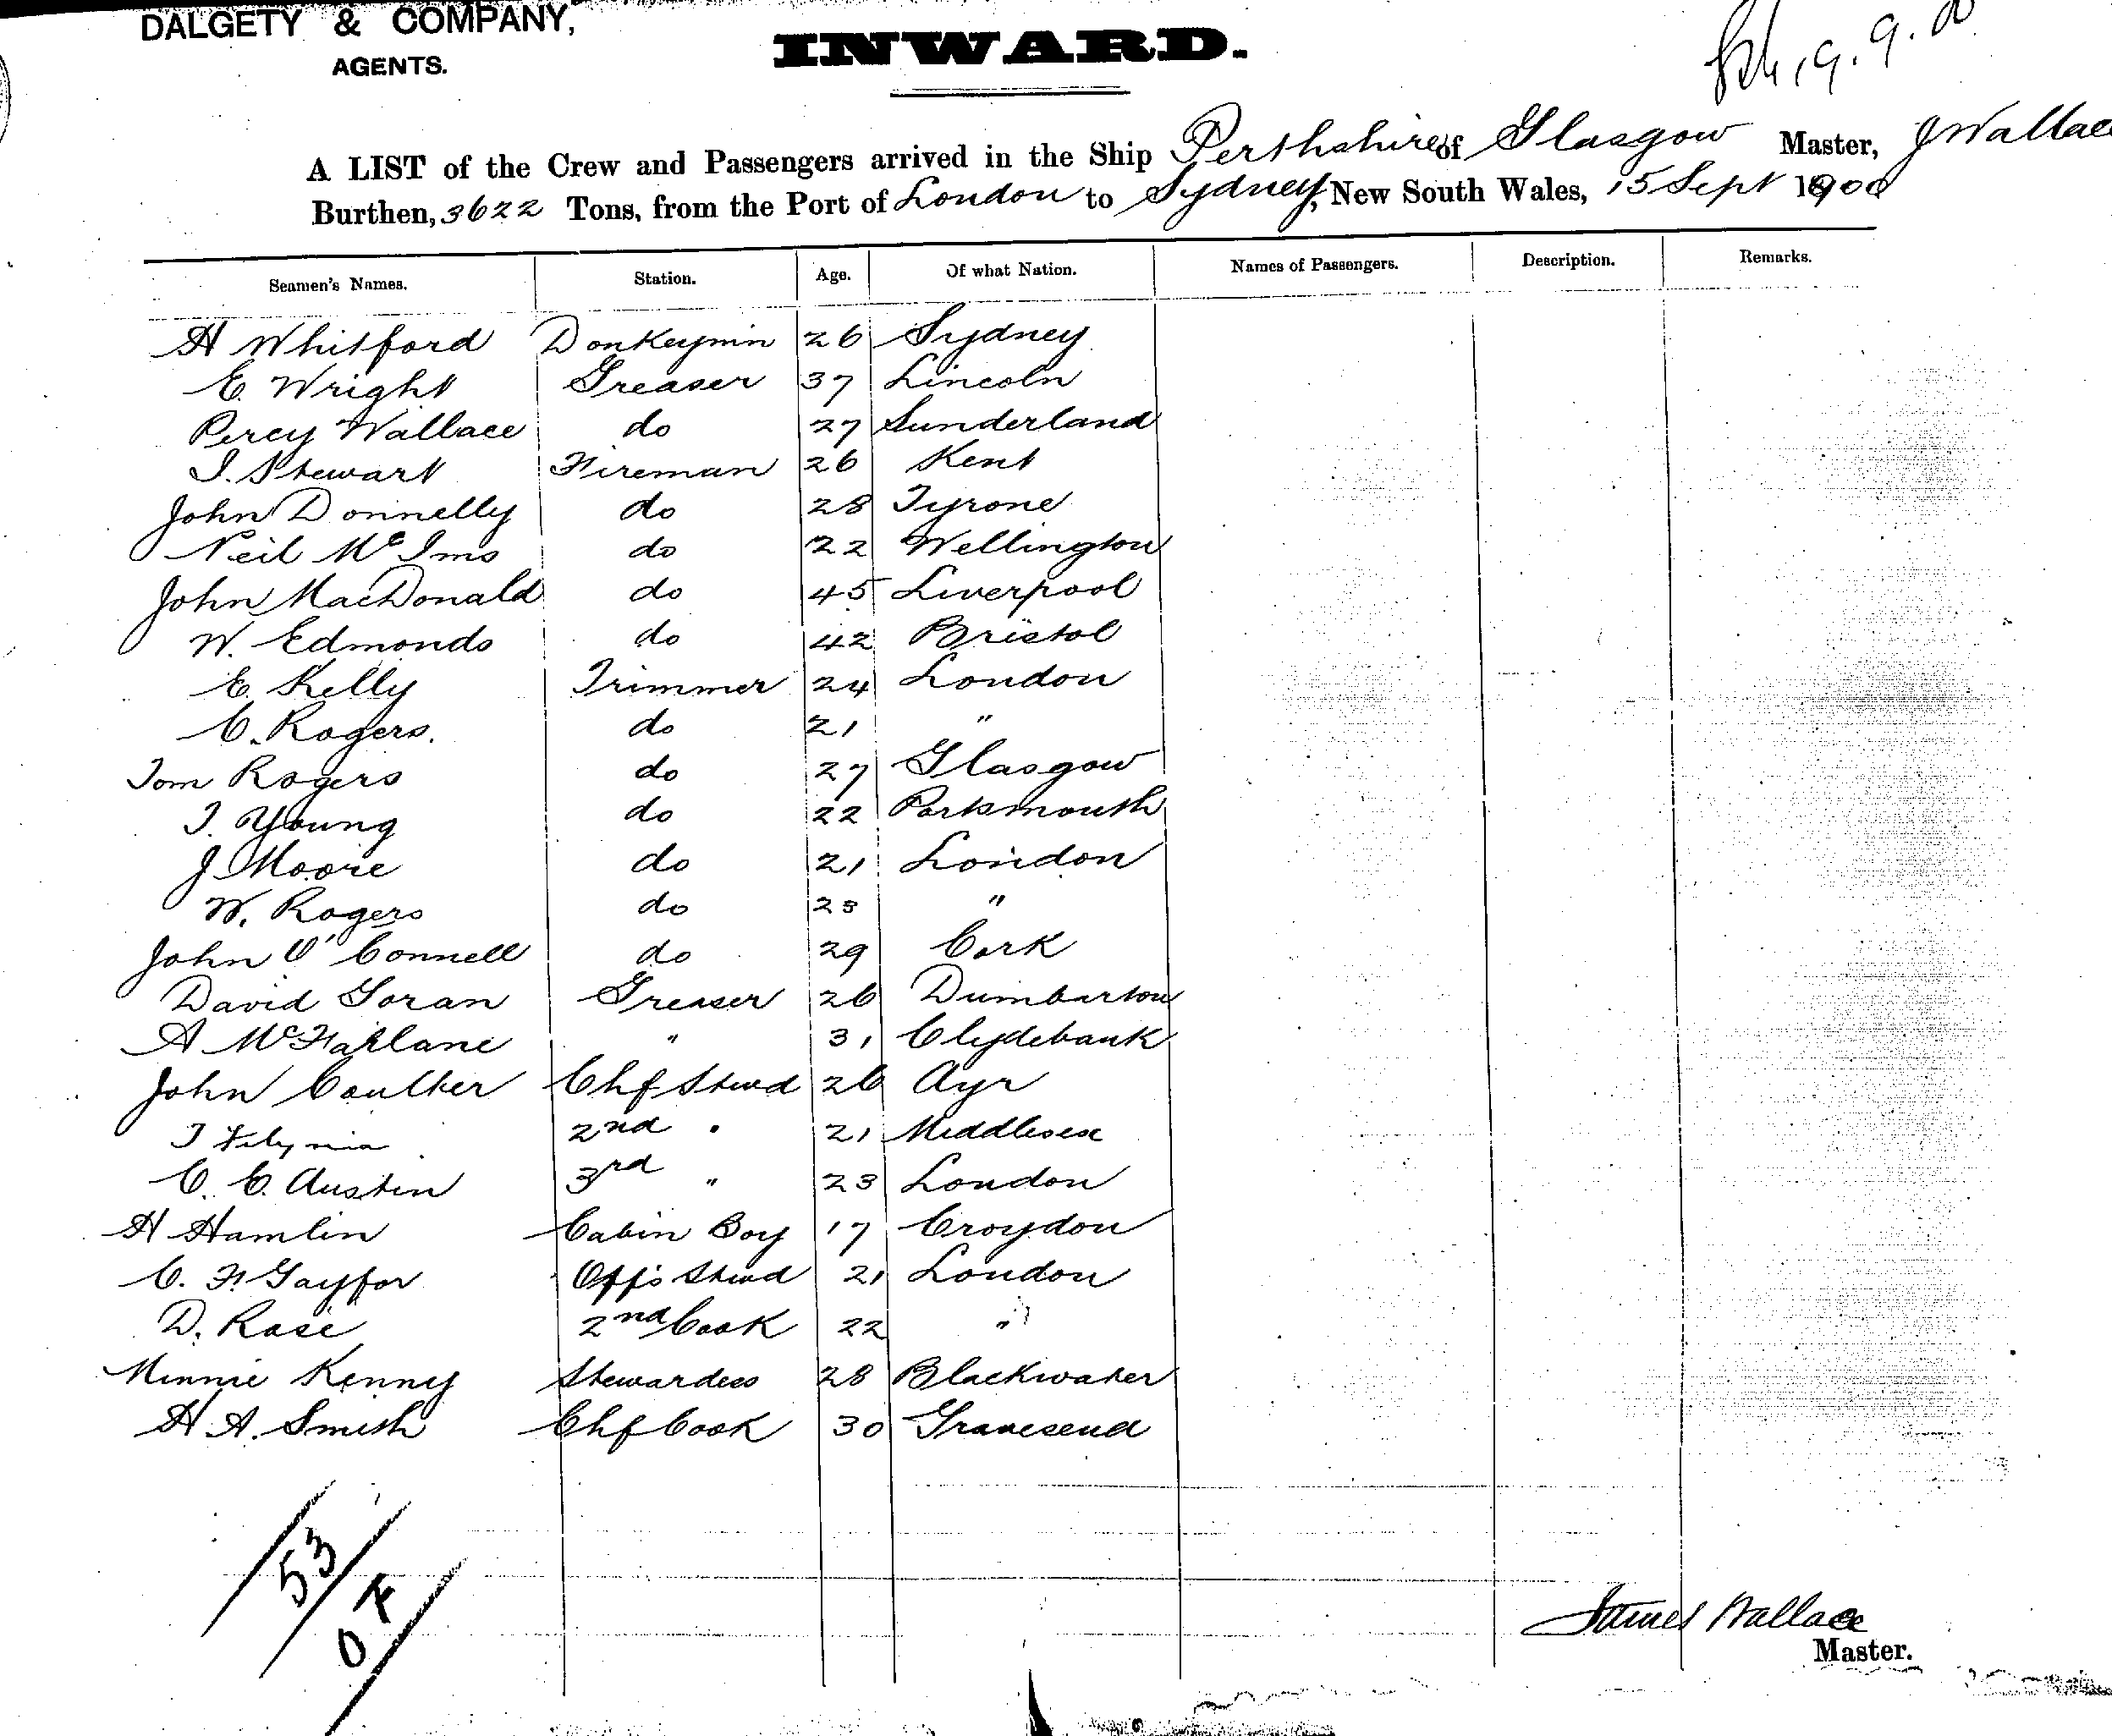 DALGETY & COMPANY,
AGENTS.
INWARD.
19.9.00
A LIST of the Crew and Passengers arrived in the Ship Perthshire of Glasgow Master, J Wallace
Burthen, 3622 Tons, from the Port of London to Sydney, New South Wales, 15 Sept 1900
Seamen's Names. Station. Age. Of what Nation. Names of Passengers. Description. Remarks.
H Whitford Donkeymn 26 Sydney
E. Wright Greaser 37 Lincoln
Percy Wallace do 27 Sunderland
J. Stewart Fireman 26 Kent
John Donnelly do 28 Tyrone
Neil Mc do 22 Wellington
John MacDonald do 45 Liverpool
W. Edmonds do 42 Bristol
E. Kelly Trimmer 24 London
C. Rogers. do 21 "
Tom Rogers do 27 Glasgow
J. Young do 22 Portsmouth
J Moore do 21 London
W. Rogers do "
John O'Connell do 29 Cork
David Goran Greaser 26 Dumbarton
A McFarlane " 31 Clydebank
John Coulter Chf Stwd 26 Ayr
2nd " 21 Middlesex
C. C. Austin 3rd " 23 London
H Hamlin Cabin Boy 17 Croydon
C. F. Gayfor Offs Stwd 21 London
D. Rose 2nd Cook 22 "
Minnie Kenny Stewardess 28 Blackwater
H. A. Smith Chf Cook 30 Gravesend
53
OK
James Wallace
Master.